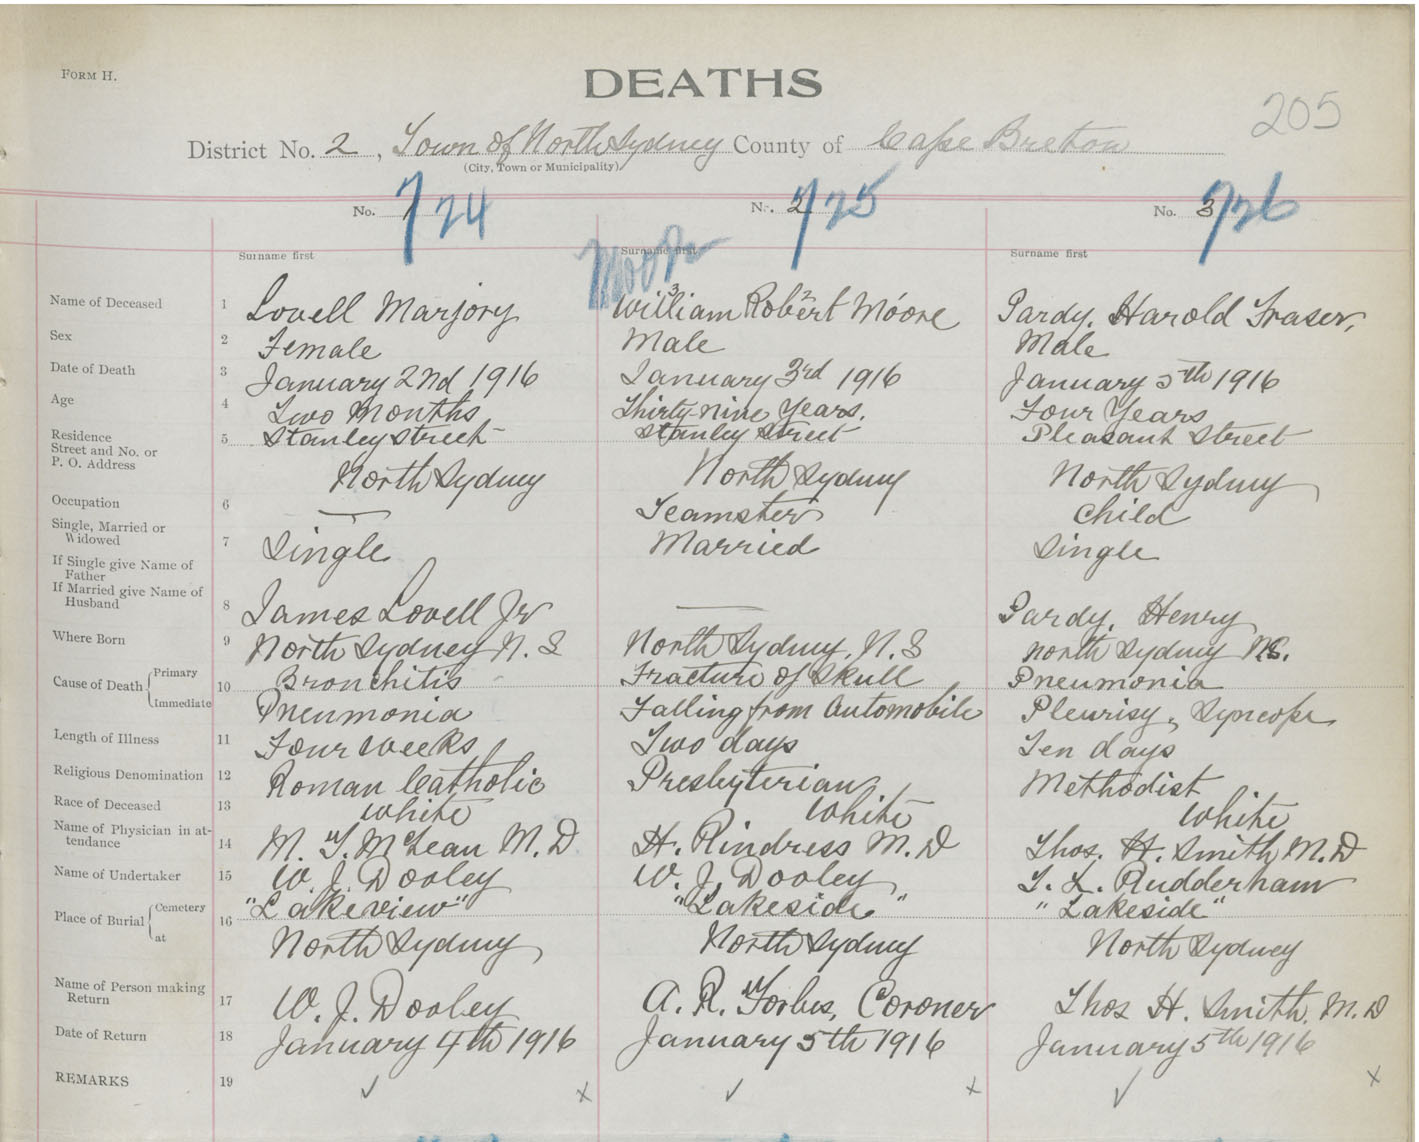 FORM H.
DEATHS
205
District No. 2, Town of North Sydney County of Cape Breton
(City, Town or Municipality)
No. 1 724 No. 2 725 No. 3 726
Moore
Surname first Surname first Surname first
Name of Deceased 1 Lovell Marjory William Robert Moore Pardy, Harold Fraser,
3 2
Sex 2 Female Male Male
Date of Death 3 January 2nd 1916 January 3rd 1916 January 5th 1916
Age 4 Two Months Thirty-nine Years. Four Years
Residence
Street and No. or 5 Stanley Street Stanley Street Pleasant Street
P. O. Address North Sydney North Sydney North Sydney
Occupation 6 — Teamster Child
Single, Married or
Widowed 7 Single Married Single
If Single give Name of
Father
If Married give Name of
Husband 8 James Lovell Jr — Pardy, Henry
Where Born 9 North Sydney N. S North Sydney, N. S North Sydney N.S.
Cause of Death Primary 10 Bronchitis Fracture of Skull Pneumonia
Immediate Pneumonia Falling from Automobile Pleurisy, Syncope
Length of Illness 11 Four weeks Two days Ten days
Religious Denomination 12 Roman Catholic Presbyterian Methodist
Race of Deceased 13 White White White
Name of Physician in at-
tendance 14 M. T. McLean M. D H. Rindress M. D Thos. H. Smith M. D
Name of Undertaker 15 W. J. Dooley W. J. Dooley T. L. Rudderham
Place of Burial Cemetery 16 "Lakeview" "Lakeside" "Lakeside"
at North Sydney North Sydney North Sydney
Name of Person making
Return 17 W. J. Dooley A. R. Forbes, Coroner Thos H. Smith, M. D
Date of Return 18 January 4th 1916 January 5th 1916 January 5th 1916
REMARKS 19 ✓ x ✓ x ✓ x